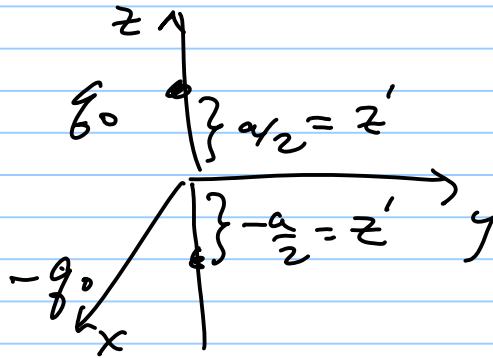 z
q₀ } a/2 = z'
} -a/2 = z'
y
-q₀
x